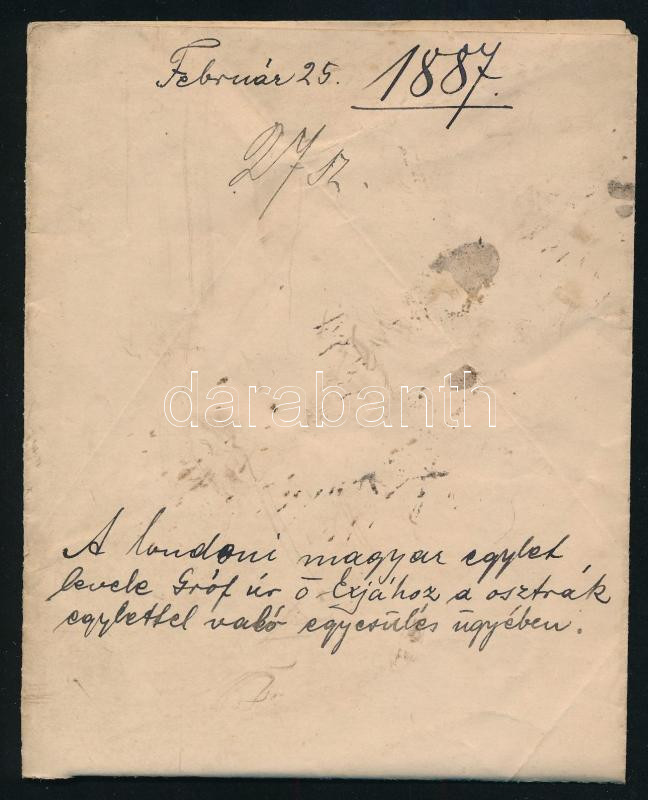 Február 25. 1887.
27 sz.
darabanth
A londoni magyar egylet
levele Gróf úr ő Exjához a osztrák
egylettel való egyesülés ügyében.